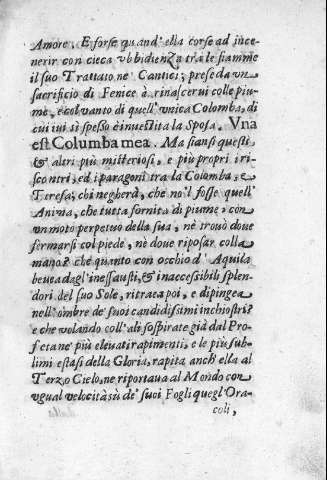 Amore. E forse quand' ella corse ad ince-
nerir con cieca vbbidienza tra le fiamme
il suo Trattato ne Cantici; prese da vn
sacrificio di Fenice à rinascerui colle piu-
me, e col vanto di quell' vnica Colomba, di
cui iui si spesso è inuestita la Sposa. Vna
est Columba mea. Ma siansi questi
& altri più misteriosi, e più propri iri-
scontri, ed i paragoni tra la Colomba, e
Teresa; chi negherà, che no'l fosse quell'
Anima, che tutta fornita di piume, con
vn moto perpetuo della sua, nè trouò doue
fermarsi col piede, nè doue riposar colla
mano? che quanto con occhio d' Aquila
beuea dagl' inessausti, & inaccessibili splen-
dori del suo Sole, ritraea poi, e dipingea
nell' ombre de' suoi candidissimi inchiostri?
e che volando coll' ali sospirate già dal Pro-
feta ne' più eleuati rapimenti, e le più sub-
limi estasi della Gloria, rapita anch' ella al
Terzo Cielo, ne riportaua al Mondo con
vgual velocità sù de' suoi Fogli quegl' Ora-
coli,